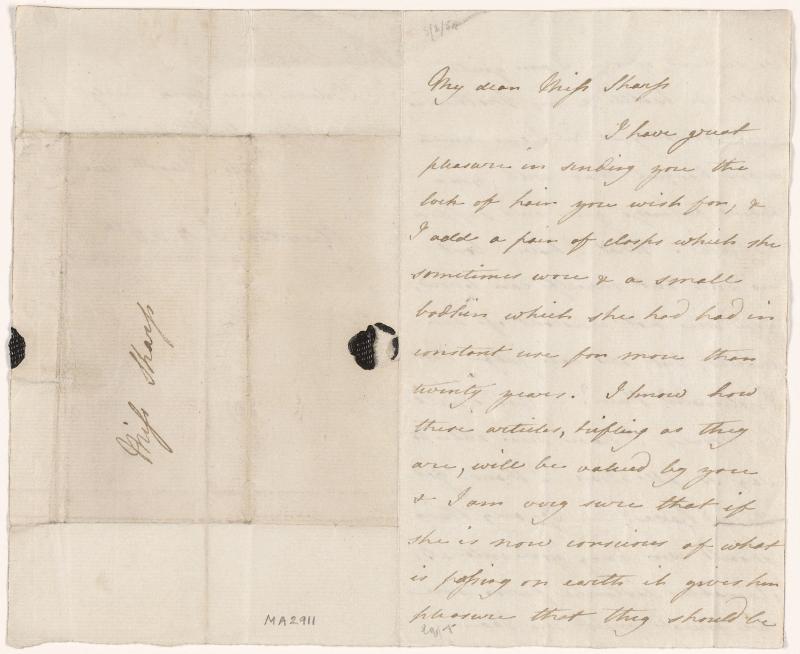 Miss Sharp
MA 2911
My dear Miss Sharp
I have great
pleasure in sending you the
lock of hair you wish for, &
I add a pair of clasps which she
sometimes wore & a small
bodkin which she had had in
constant use for more than
twenty years. I know how
these articles, trifling as they
are, will be valued by you
& I am very sure that if
she is now conscious of what
is passing on earth it gives her
pleasure that they should be